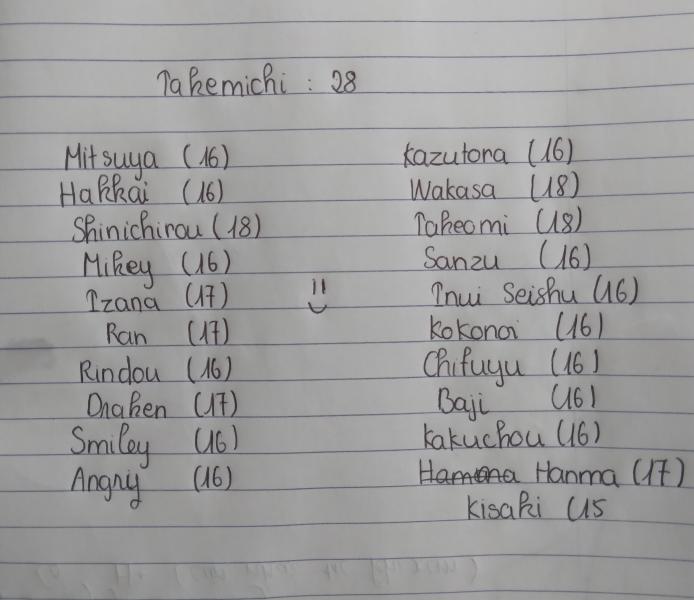 Takemichi : 28
Mitsuya (16)
Hakkai (16)
Shinichirou (18)
Mikey (16)
Izana (17)
Ran (17)
Rindou (16)
Draken (17)
Smiley (16)
Angry (16)
Kazutora (16)
Wakasa (18)
Takeomi (18)
Sanzu (16)
Inui Seishu (16)
Kokonoi (16)
Chifuyu (16)
Baji (16)
Kakuchou (16)
Hanma (17)
Kisaki (15